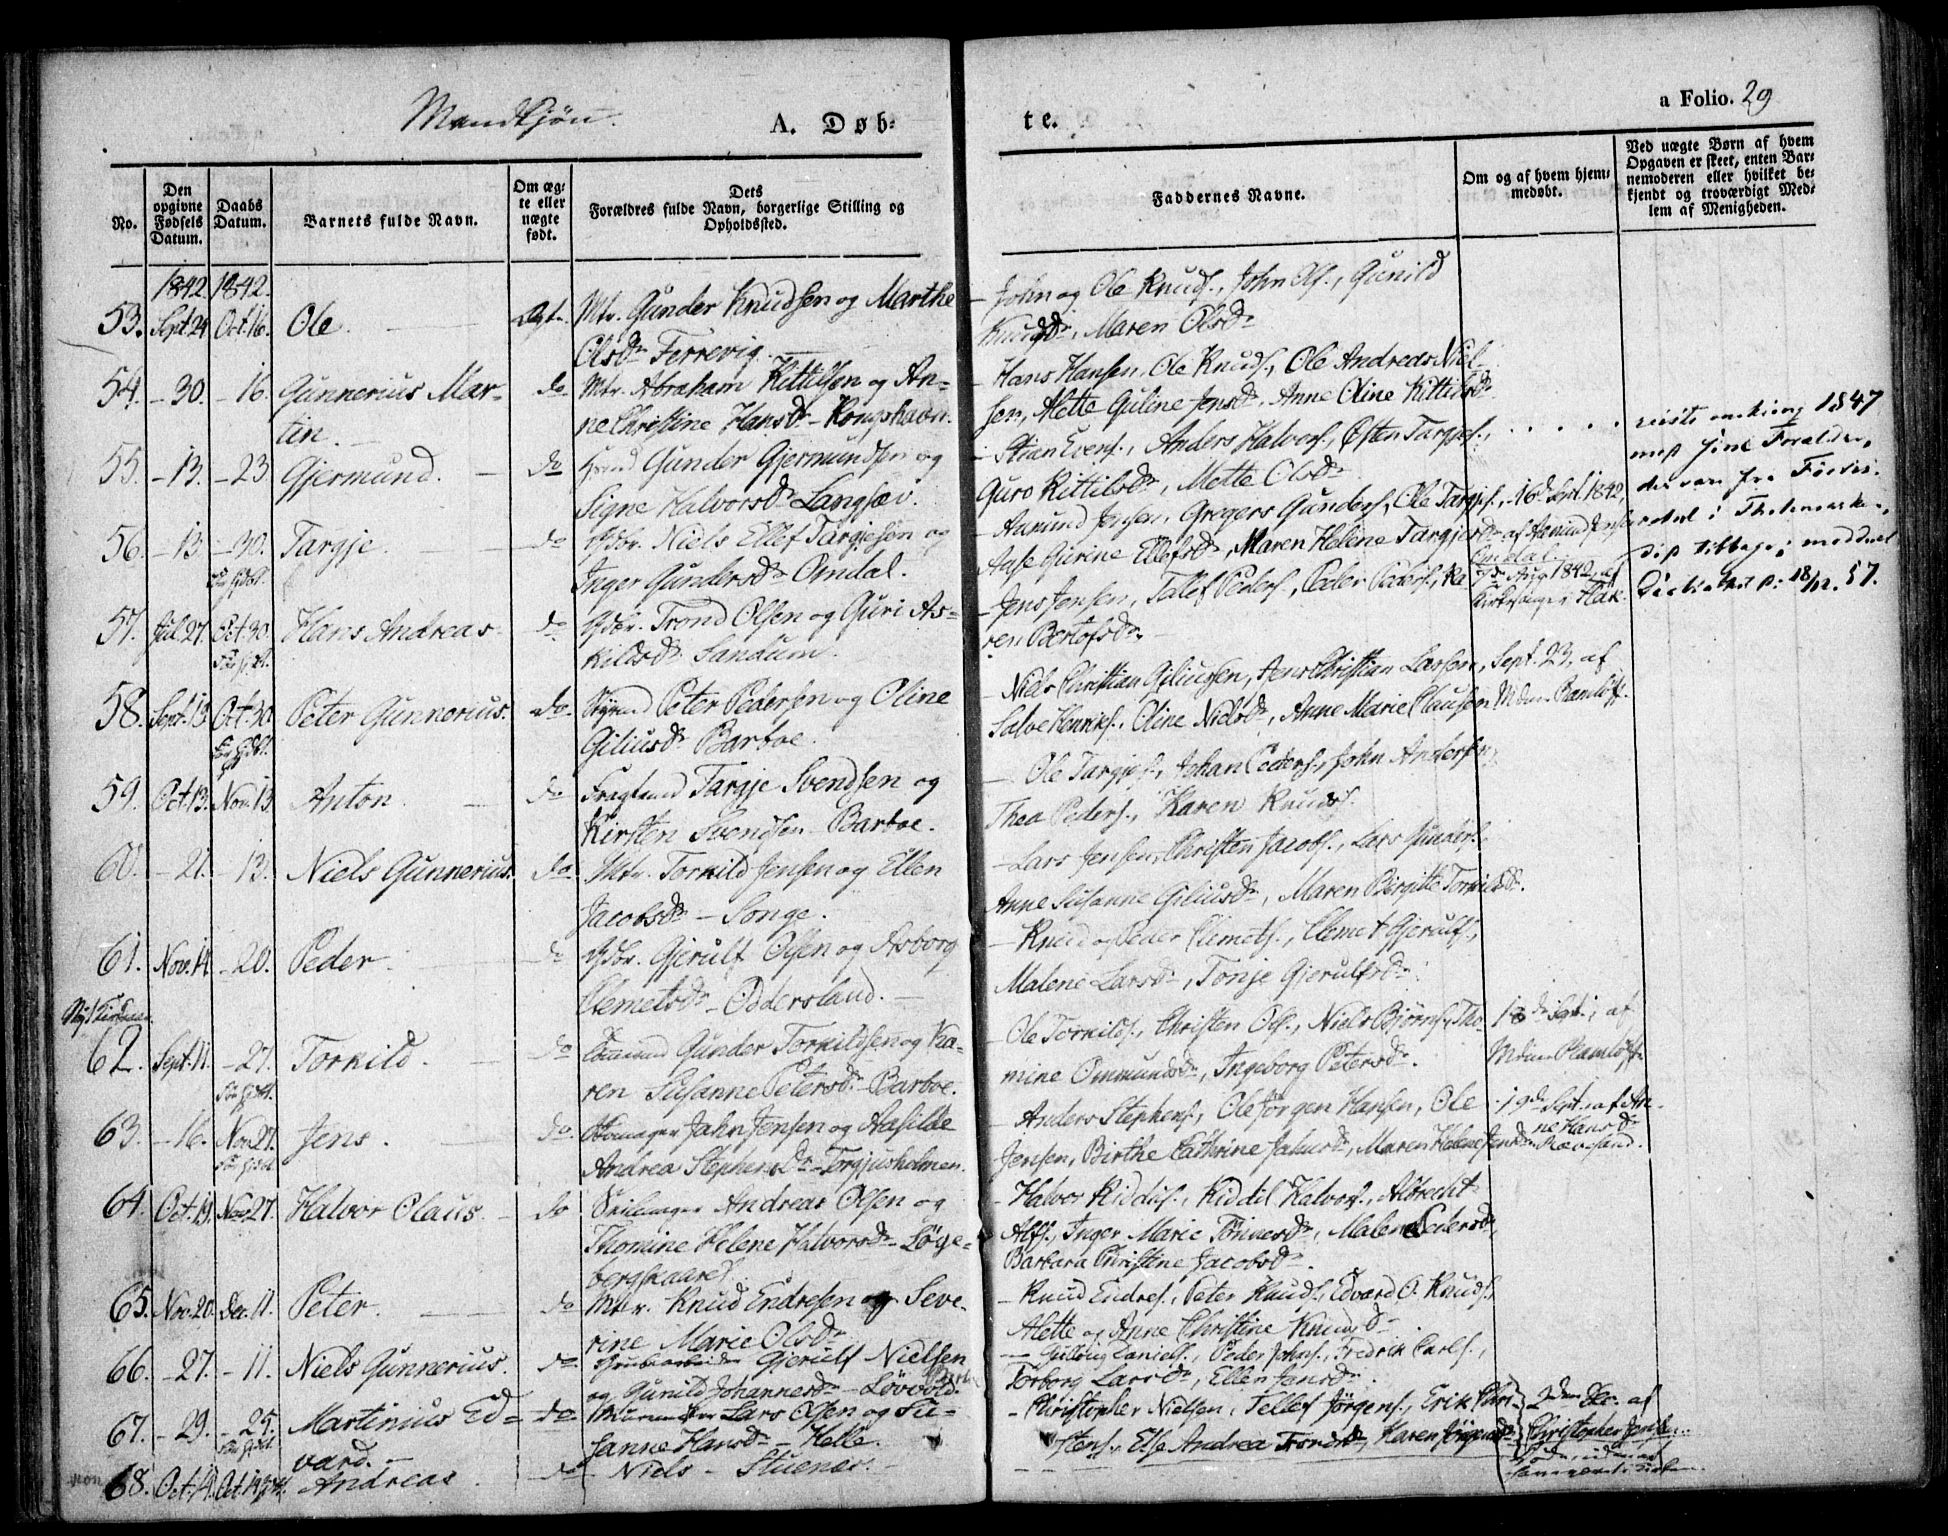 Mandkjøn.
A. Døb-
te.
a Folio. 29
No.
Den opgivne Fødsels Datum.
Daabs Datum.
Barnets fulde Navn.
Om ægte eller uægte født.
Dets Forældres fulde Navn, borgerlige Stilling og Opholdssted.
Faddernes Navne.
Om og af hvem hjemmedøbt.
Ved uægte Børn af hvem Opgaven er skeet, enten Barnemoderen eller hvilket bekjendt og troværdigt Medlem af Menigheden.
1842 1842.
53. Sept. 24 Oct. 16. Ole. Ægt. Mtr. Gunder Knudsen og Marthe
Olsdr Ferrevig.
- John og Ole Knuds., John Ols., Gunild
Knudsdr, Maren Olsdr
54. - 30. - 16. Gunnerius Mar-
tin. do Mtr. Abraham Kittilsen og An-
ne Christine Hansdr - Kongshavn.
- Hans Hansen, Ole Knuds., Ole Andreas Niel-
sen, Alette Guline Jensdr, Anne Oline Kittilsdr
55. - 13. - 23 Gjermund. do Gunder Gjermundsen og
Signe Halvorsdr Langsæv.
- Stian Evens., Anders Halvors., Osten Targjes.,
Guro Kittilsdr, Mette Olsdr
1847
med sine Forældre,
18/12. 57.
56. - 13 - 30. Targje. do Gbr. Niels Ellef Targjesen og
Inger Gundersdr Omdal.
- Aamund Jensen, Gregers Gunders., Ole Targjes.,
Aase Gurine Ellefsdr, Maren Helene Targjesdr
16de Sept. 1842, af Aamund Jensen
Omdal.
57. Jul. 27. Oct. 30 Hans Andreas. do Gbr. Trond Olsen og Guri As-
kildsdr Sandum.
- Jens Jensen, Tallef Peders., Peder Peders., Ka-
ren Berlofsdr
Aug. 1842, af
Kirkesanger
58. Sept. 13. Oct. 30 Peter Gunnerius. do. Peter Pedersen og Oline
Giliusdr Barboe.
- Niels Christian Giliussen, Jens Christian Larsen,
Salve Henriks., Oline Nielsdr, Anne Marie Clausen
Sept. 23, af
59. Oct. 13. Nov. 13 Anton. do Fragtmd Targje Svendsen og
Kirsten Svendsen Barboe.
- Ole Targjes., Johan Peders., John Andersen,
Thea Peders., Karen Knuds.
60. - 21. - 13. Niels Gunnerius. do Mtr. Torkild Jensen og Ellen
Jacobsdr - Songe.
- Lars Jensen, Christen Jacobs., Lars Gunders.
Anne Susanne Giliusdr, Maren Birgitte Torkildsdr.
61. Nov. 14. - 20. Peder. do Gbr. Gjerulf Olsen og Asborg
Clemetsdr - Oddersland.
- Knud og Peder Clemets., Clemet Gjerulfs.,
Malene Larsdr, Tonje Gjerulfsdr
62. Sept. 11. - 27. Torkild. do Gunder Torkildsen og Ka-
ren Susanne Petersdr Barboe.
- Ole Torkilds., Christen Ols., Niels Bjørns., Tho-
mine Ommundsdr, Ingeborg Petersdr.
Sept., af
63. - 16. Nov. 27. Jens. do. Jahn Jensen og Aasilde
Andrea Stephensdr Torjusholmen.
- Anders Stephens., Ole Jørgen Hansen, Ole
Jensen, Birthe Cathrine Jahnsdr, Maren Helene Jensdr
19de Sept. af An-
ne Hansdr
Rævesand.
64. Oct. 19. Nov. 27. Halvor Claus. do Andreas Olsen og
Thomine Helene Halvorsdr -
- Halvor Kiddils., Kiddil Halvors., Albrecht
Alfs., Inger Marie Tønnesdr, Malene Pedersdr,
Barbara Christine Jacobsdr.
65. Nov. 20. Dec. 11. Peter. do Mtr. Knud Endresen og Seve-
rine Marie Olsdr
- Knud Endres., Peter Knuds., Edvard O. Knuds.,
Alette og Anne Christine Knudsdr
66. - 27. - 11. Niels Gunnerius. do Grubearbeider Gjerulf Nielsen
og Gunild Johannesdr - Løvvold.
Daniels., Peder Johns., Fredrik Carls.,
Torborg Larsdr, Ellen Jensdr.
67. - 29. - 25. Martinius Ed-
vard. - do Lars Olsen og Su-
sanne Hansdr - Helle.
- Christopher Nielsen, Tellef Jørgens., Erik Chri-
stens., Else Andrea Trondsdr, Karen Jørgensdr
2den Dec. af
Christopher Jensen.
68. Oct. 14. Oct. 14 Andreas do - Niels - Stuenes.